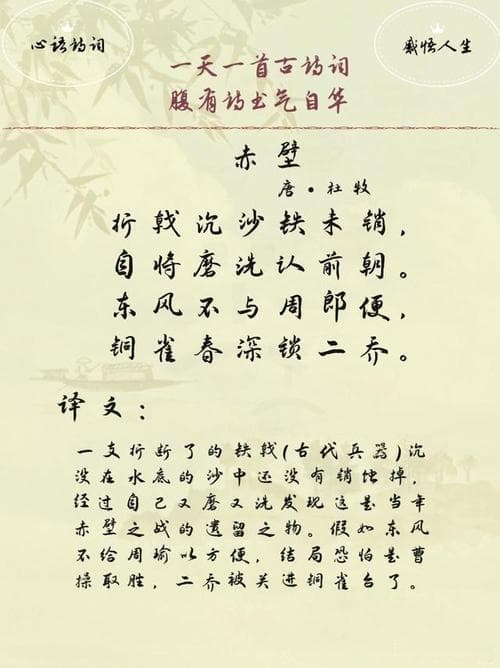 心语诗词
感悟人生
一天一首古诗词
腹有诗书气自华
赤壁
唐·杜牧
折戟沉沙铁未销，
自将磨洗认前朝。
东风不与周郎便，
铜雀春深锁二乔。
译文：
一支折断了的铁戟(古代兵器)沉
没在水底的沙中还没有销蚀掉，
经过自己又磨又洗发现这是当年
赤壁之战的遗留之物。假如东风
不给周瑜以方便，结局恐怕是曹
操取胜，二乔被关进铜雀台了。